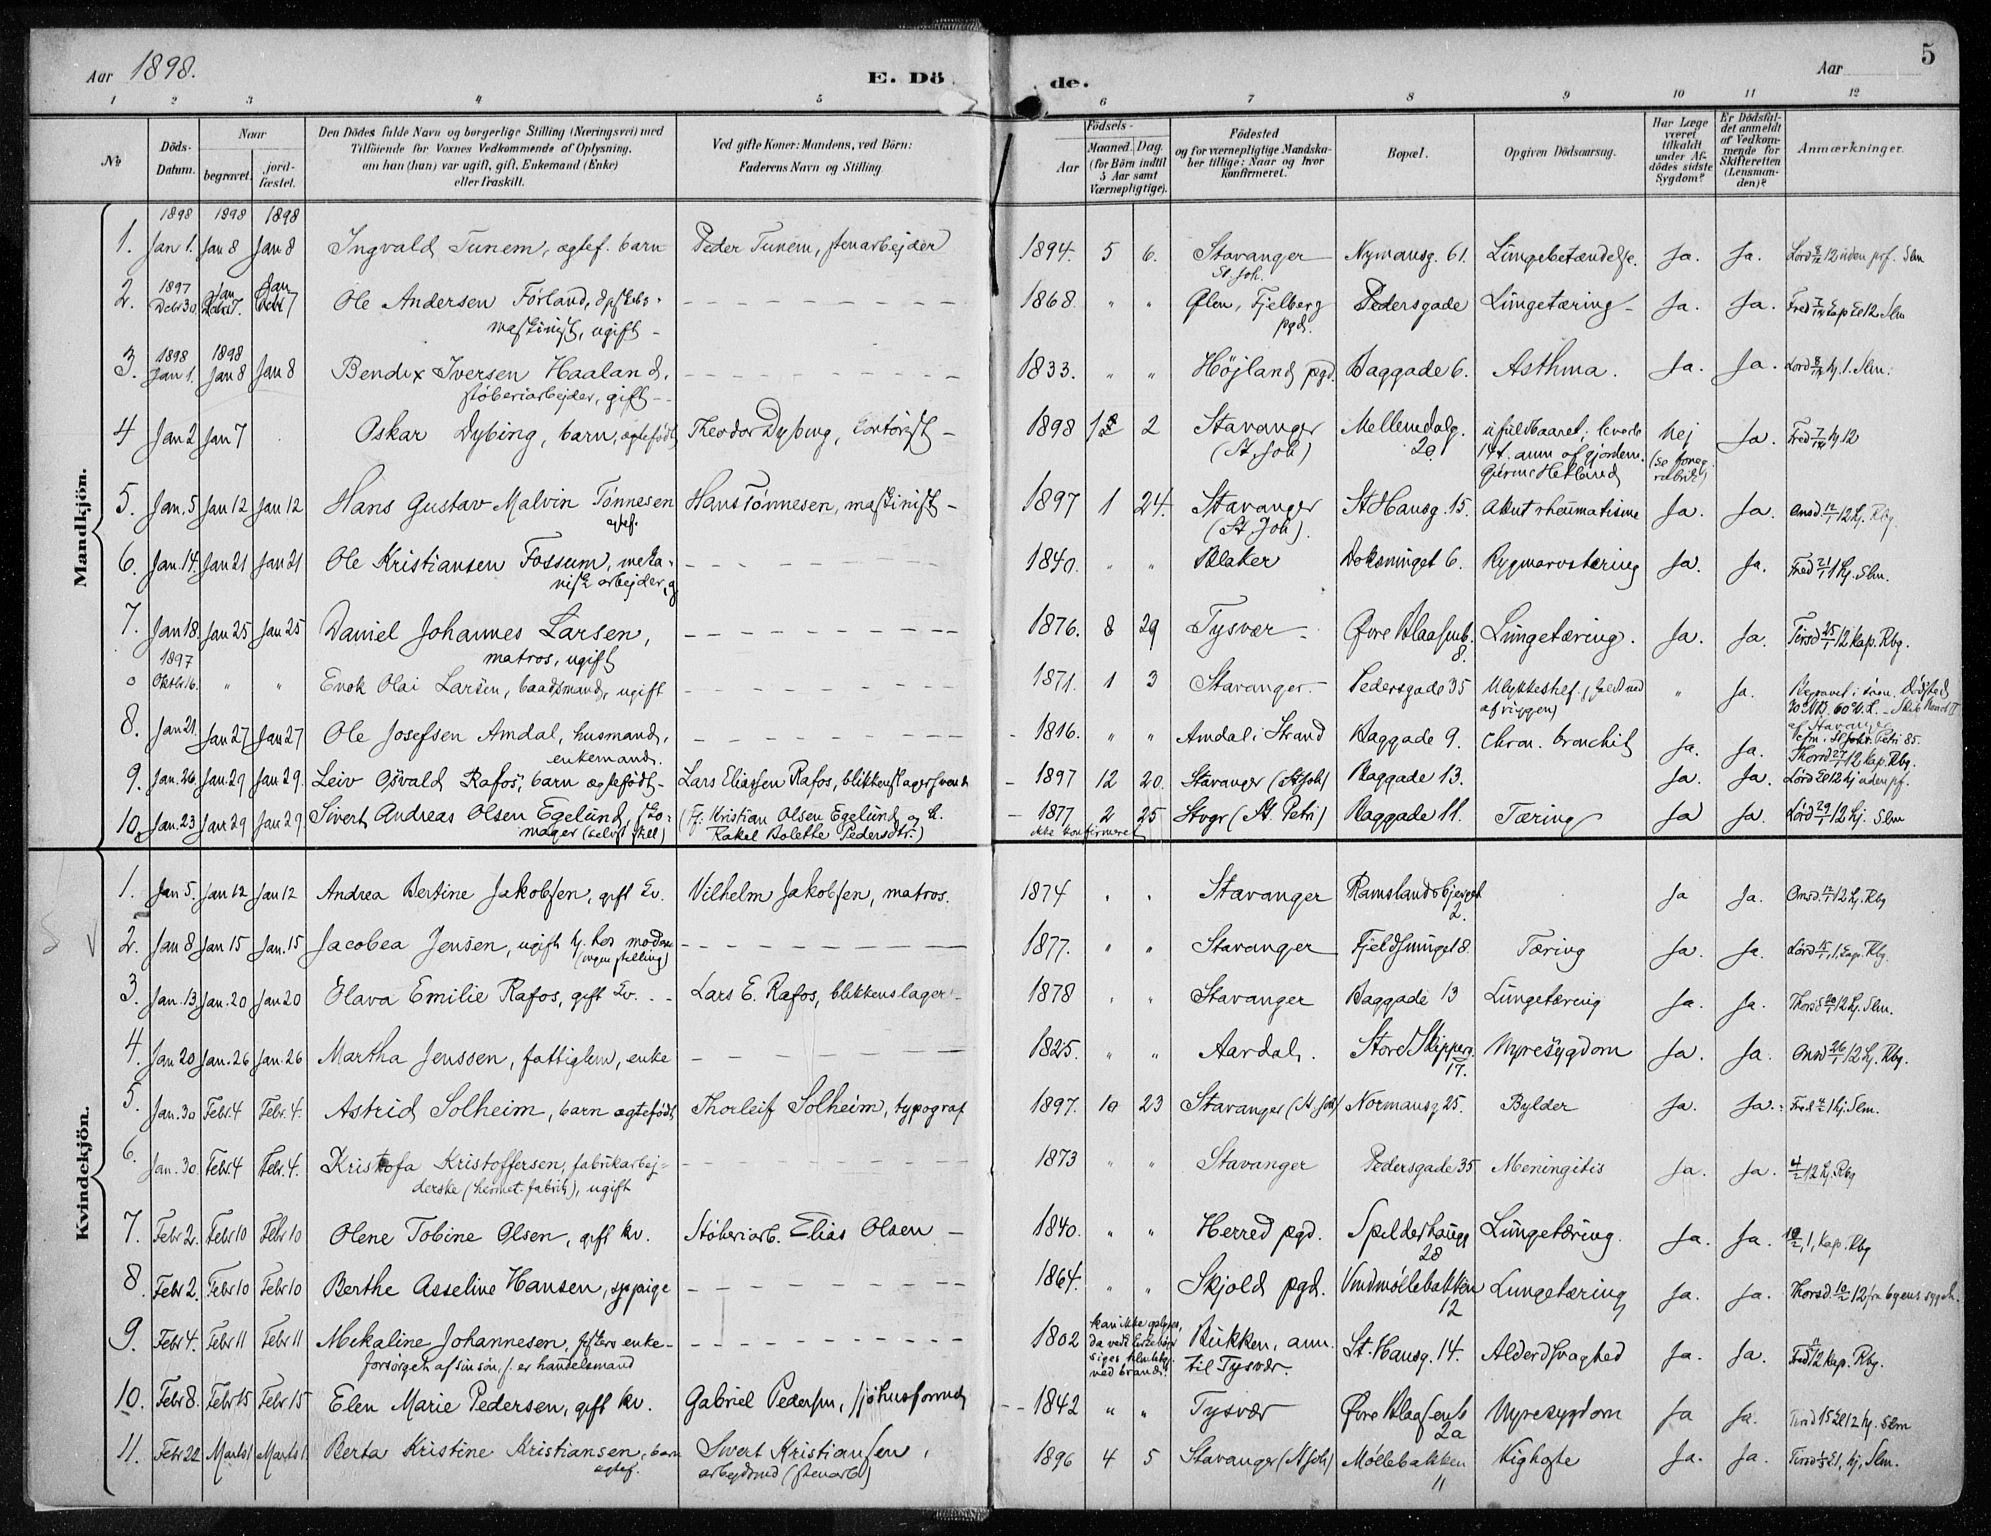 Aar 1898. E. Dö de. Aar 5
1 2 3 4 5 6 7 8 9 10 11 12
No
Döds-Datum.
Naar
begravet.
jord-fæstet.
Den Dödes fulde Navn og borgerlige Stilling (Næringsvei) med
Tilföiende for Voxnes Vedkommende af Oplysning,
om han (hun) var ugift, gift, Enkemand (Enke)
eller fraskilt.
Ved gifte Koner: Mandens, ved Börn:
Faderens Navn og Stilling
Födsels-
Aar
Maaned. Dag.
(for Börn indtil
5 Aar samt
Værnepligtige).
Födested
og for værnepligtige Mandska-
ber tillige: Naar og hvor
Konfirmeret.
Bopæl.
Opgiven Dödsaarsag.
Har Læge
været
tilkaldt
under Af-
dödes sidste
Sygdom?
Er Dödsfal-
det anmeldt
af Vedkom-
mende for
Skifteretten
(Lensman-
den)?
Anmærkninger.
Mandkjön.
1898 1898 1898
1. Jan 1. Jan 8 Jan 8 Ingvald Tunem, ægtef. barn Peder Tunem, stenarbejder 1894. 5 6. Stavanger St. Joh. Nymansg. 61. Lungebetændelse. Ja. Ja. Lørd 8/1 12 uden prf. Slm
2. 1897 Decbr 30. Jan 7. Jan 7 Ole Andersen Førland, dpskibs-
maskinist, ugift - 1868. " " Ølen, Fjelberg pgd. Pedersgade Lungetæring - Ja. Ja. Fred 7/1 kap kl 12 Slm
3. 1898 Jan 1. 1898 Jan 8 Jan 8 Bendix Iversen Haaland,
støberiarbejder, gift - 1833. " " Højland pgd. Baggade 6. Asthma. Ja. Ja. Lørd 8/1 kj. 1. Slm.
4 Jan 2 Jan 7 Oskar Dybing, barn, ægtefødt Theodor Dybing, kontorist - 1898 1 2 Stavanger (St. Joh) Mellemdalg. 20 ufuldbaaret, levede
14 t. anm af gjordem.
Gurine Hetland Nej
(se foreg.
rubrik) Ja. Fred 7/1 kj 12
5. Jan. 5 Jan 12 Jan 12 Hans Gustav Malvin Tønnesen
ægtef. Hans Tønnesen, maskinist - 1897 1 24. Stavanger (St Joh). St Hansg. 15. Akut rheumatisme Ja. Ja. Onsd. 12/1 12 kj. Rbg.
6. Jan. 14. Jan 21 Jan 21 Ole Kristiansen Fossum, meka-
nisk arbejder, g 1840. " " Blaker Doksmuget 6. Rygmarvstæring Ja. Ja. Fred 21/1 1 kj. Slm.
7. Jan 18. Jan 25 Jan 25 Daniel Johannes Larsen,
matros, ugift 1876. 8 29 Tysvær - Øvre Blaasenb. 8. Lungetæring. Ja. Ja. Tirsd 25/1 12 kap. Rbg.
0 1897 Oktbr 16. " " Enok Olai Larsen, baadsmand, ugift 1871. 1 3 Stavanger. Pedersgade 35 Ulykkestilf. (faldt ned
af riggen) " Ja. Begravet i søen.
8. Jan 21. Jan 27 Jan 27 Ole Josefsen Amdal, husmand,
enkemand. 1816. " " Amdal i Strand Baggade 9. Chron. bronchit Ja. Ja. Thorsd 27/1 12 kap. Rbg.
9. Jan. 26 Jan. 29 Jan 29. Leiv Osvald Rafos, barn ægtefødt Lars Eliassen Rafos, blikkenslagersvend 1897 12 20. Stavanger (St Joh) Baggade 13. Ja. Ja. Lørd 12 kj uden prf.
10. Jan. 23 Jan 29 Jan 29. Sivert Andreas Olsen Egelund, sko-
mager (selvst. still) (F. Kristian Olsen Egelund og h.
Rakel Bolette Pedersdtr.) 1877 2 25
ikke konfirmeret Stvgr (St. Petri) Baggade 11. Tæring Ja Ja. Lørd 29/1 12 kj. Slm
Kvindekjön.
1. Jan 5. Jan 12 Jan 12 Andrea Bertine Jakobsen, gift kv. Vilhelm Jakobsen, matros. 1874 " " Stavanger Ramslandsbjerget 2. Ja Ja. Onsd. 12/1 12 kj. Rbg
2. Jan 8 Jan 15 Jan. 15 Jacobea Jensen, ugift hj. hos moderen
(ingen stilling) 1877. " " Stavanger Fjeldsmuget 8. Tæring Ja. Ja. Lørd. 15/1, 1, kap. Rbg.
3. Jan. 13 Jan. 20 Jan 20 Olava Emilie Rafos, gift kv. - Lars E. Rafos, blikkenslager - 1878 " " Stavanger Baggade 13 Lungetæring Ja. Ja. Thorsd 20/1 12 kj. Slm.
4. Jan 20 Jan. 26 Jan. 26 Martha Jenssen, fattiglem, enke 1825. " " Aardal. Store Skipperg. 17. Nyresygdom Ja. Ja. Onsd 26/1 12 kj. Rbg.
5. Jan. 30 Febr. 4 Febr. 4. Astrid Solheim, barn ægtefødt Thorleif Solheim, typograf 1897. 10 23 Stavanger (St. Joh) Normansg 25. Bylder Ja. Ja. Fred 4/2 1 kj. Slm.
6. Jan. 30. Febr. 4 Febr. 4. Kristofa Kristoffersen, fabrikarbej-
derske (hermet. fabrik), ugift 1873 " " Stavanger Pedersgade 35 Meningitis Ja. Ja. 4/2 12 kj. Rbg
7. Febr 2. Febr 10 Febr 10 Olene Tobine Olsen, gift kv. Støberiarb. Elias Olsen - 1840. " " Herred pgd. Spilderhaugg 28 Lungetæring. Ja. Ja. 10/2, 1, kap. Rbg
8. Febr 2. Febr 10 Febr 10 Berthe Asseline Hansen, sypige 1864. " " Skjold pgd. Vindmøllebakken 12 Lungetæring Ja. Ja. Thorsd. 10/2 12 fra byens sygeh.
9. Febr 4. Febr 11 Febr 11 Mekaline Johannesen, fiskers enke -
forsørget af sin søn, s. er handelsmand 1802 kan ikke oplyses,
da vedk. kirkebog
siges tilintetgj.
ved brand. Bukken, anm.
til Tysvær. St. Hansg. 14. Alderdsvaghed Ja. Ja. Fred 12 kap. Rbg.
10. Febr 8. Febr 15 Febr 15 Elen Marie Pedersen, gift kv. Gabriel Pedersen, sjøhusformd 1842 " " Tysvær Øvre Blaasenb 2a Nyresygdom Ja Ja. Tirsd 15 kl 12 kj. Slm
11. Febr 22 Marts 1 Marts 1. Berta Kristine Kristiansen, barn
ægtef. Sivert Kristiansen,
arbejdsmd (stenarb) 1896 4 5 Stavanger (St Joh) Møllebakken 11 Kighoste Ja. Ja. Tirsd 1/3 kl 1, kj, Slm.